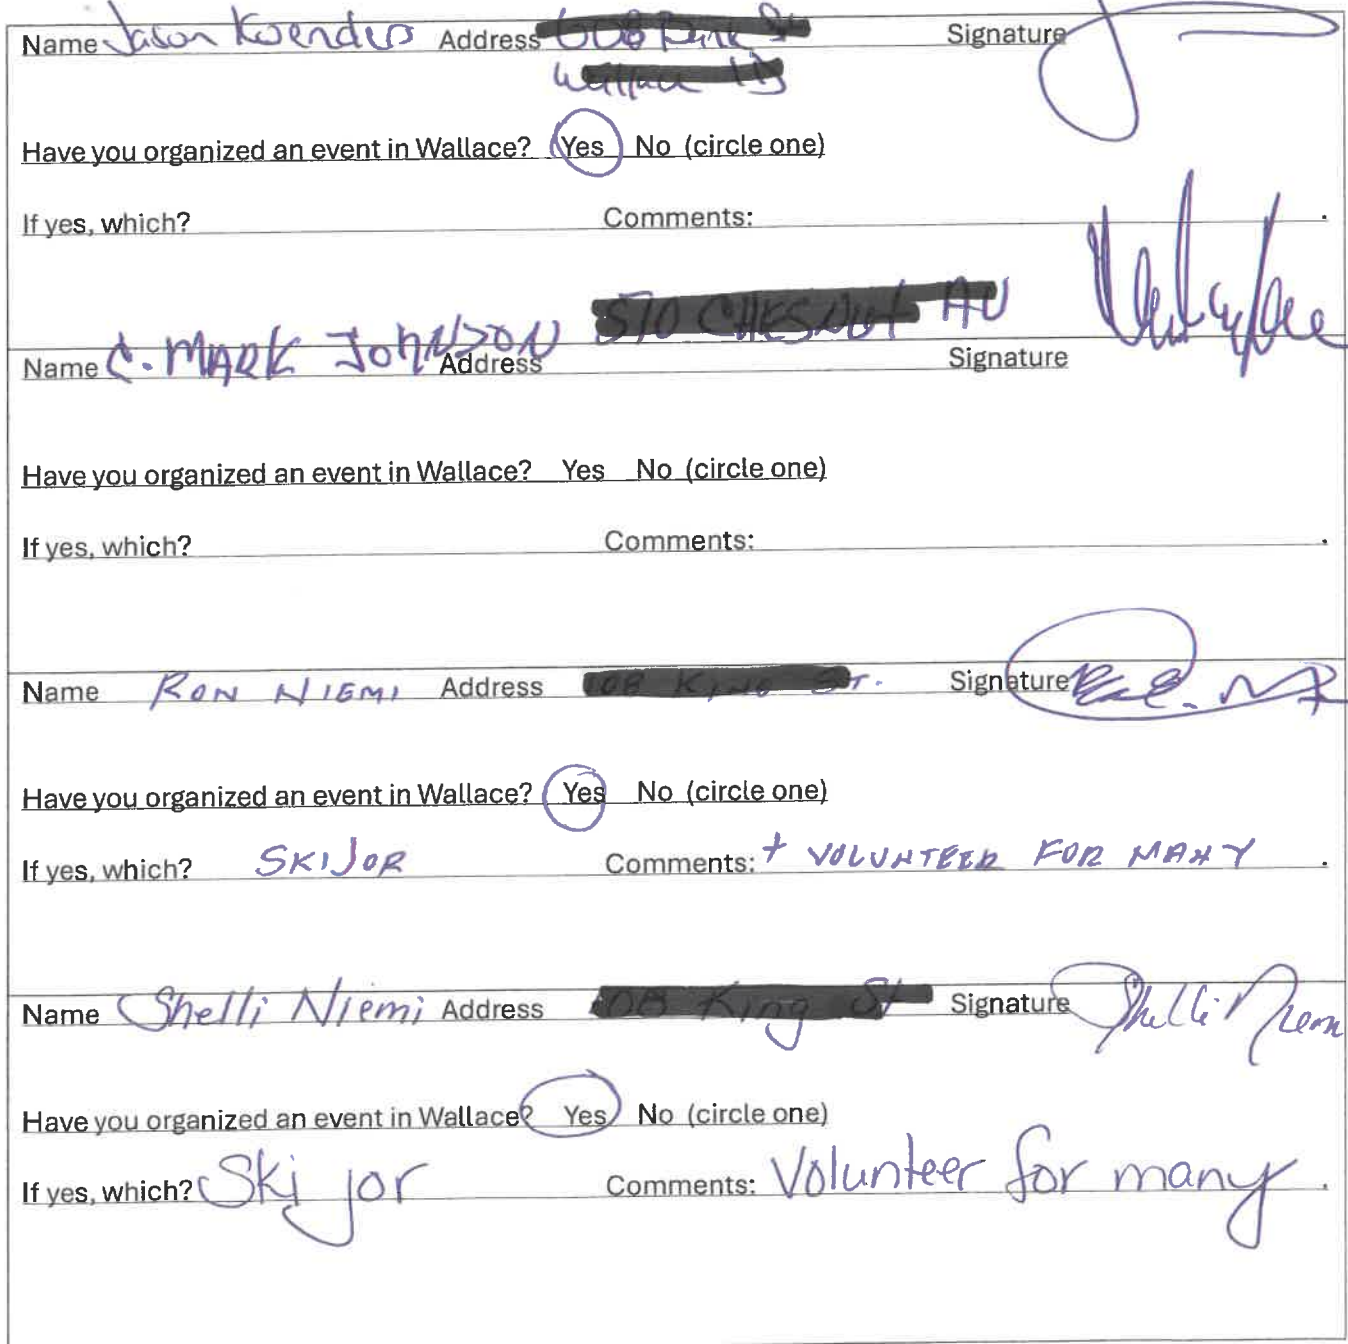 Name Jason Koenders Address Signature
Have you organized an event in Wallace? Yes No (circle one)
If yes, which? Comments: .
AV
Name C. MARK JOHNSON Address Signature
Have you organized an event in Wallace? Yes No (circle one)
If yes, which? Comments: .
Name RON NIEMI Address ST. Signature
Have you organized an event in Wallace? Yes No (circle one)
If yes, which? SKIJOR Comments: + VOLUNTEER FOR MANY .
Name Shelli Niemi Address Signature Shelli Niemi
Have you organized an event in Wallace? Yes No (circle one)
If yes, which? Ski jor Comments: Volunteer for many .